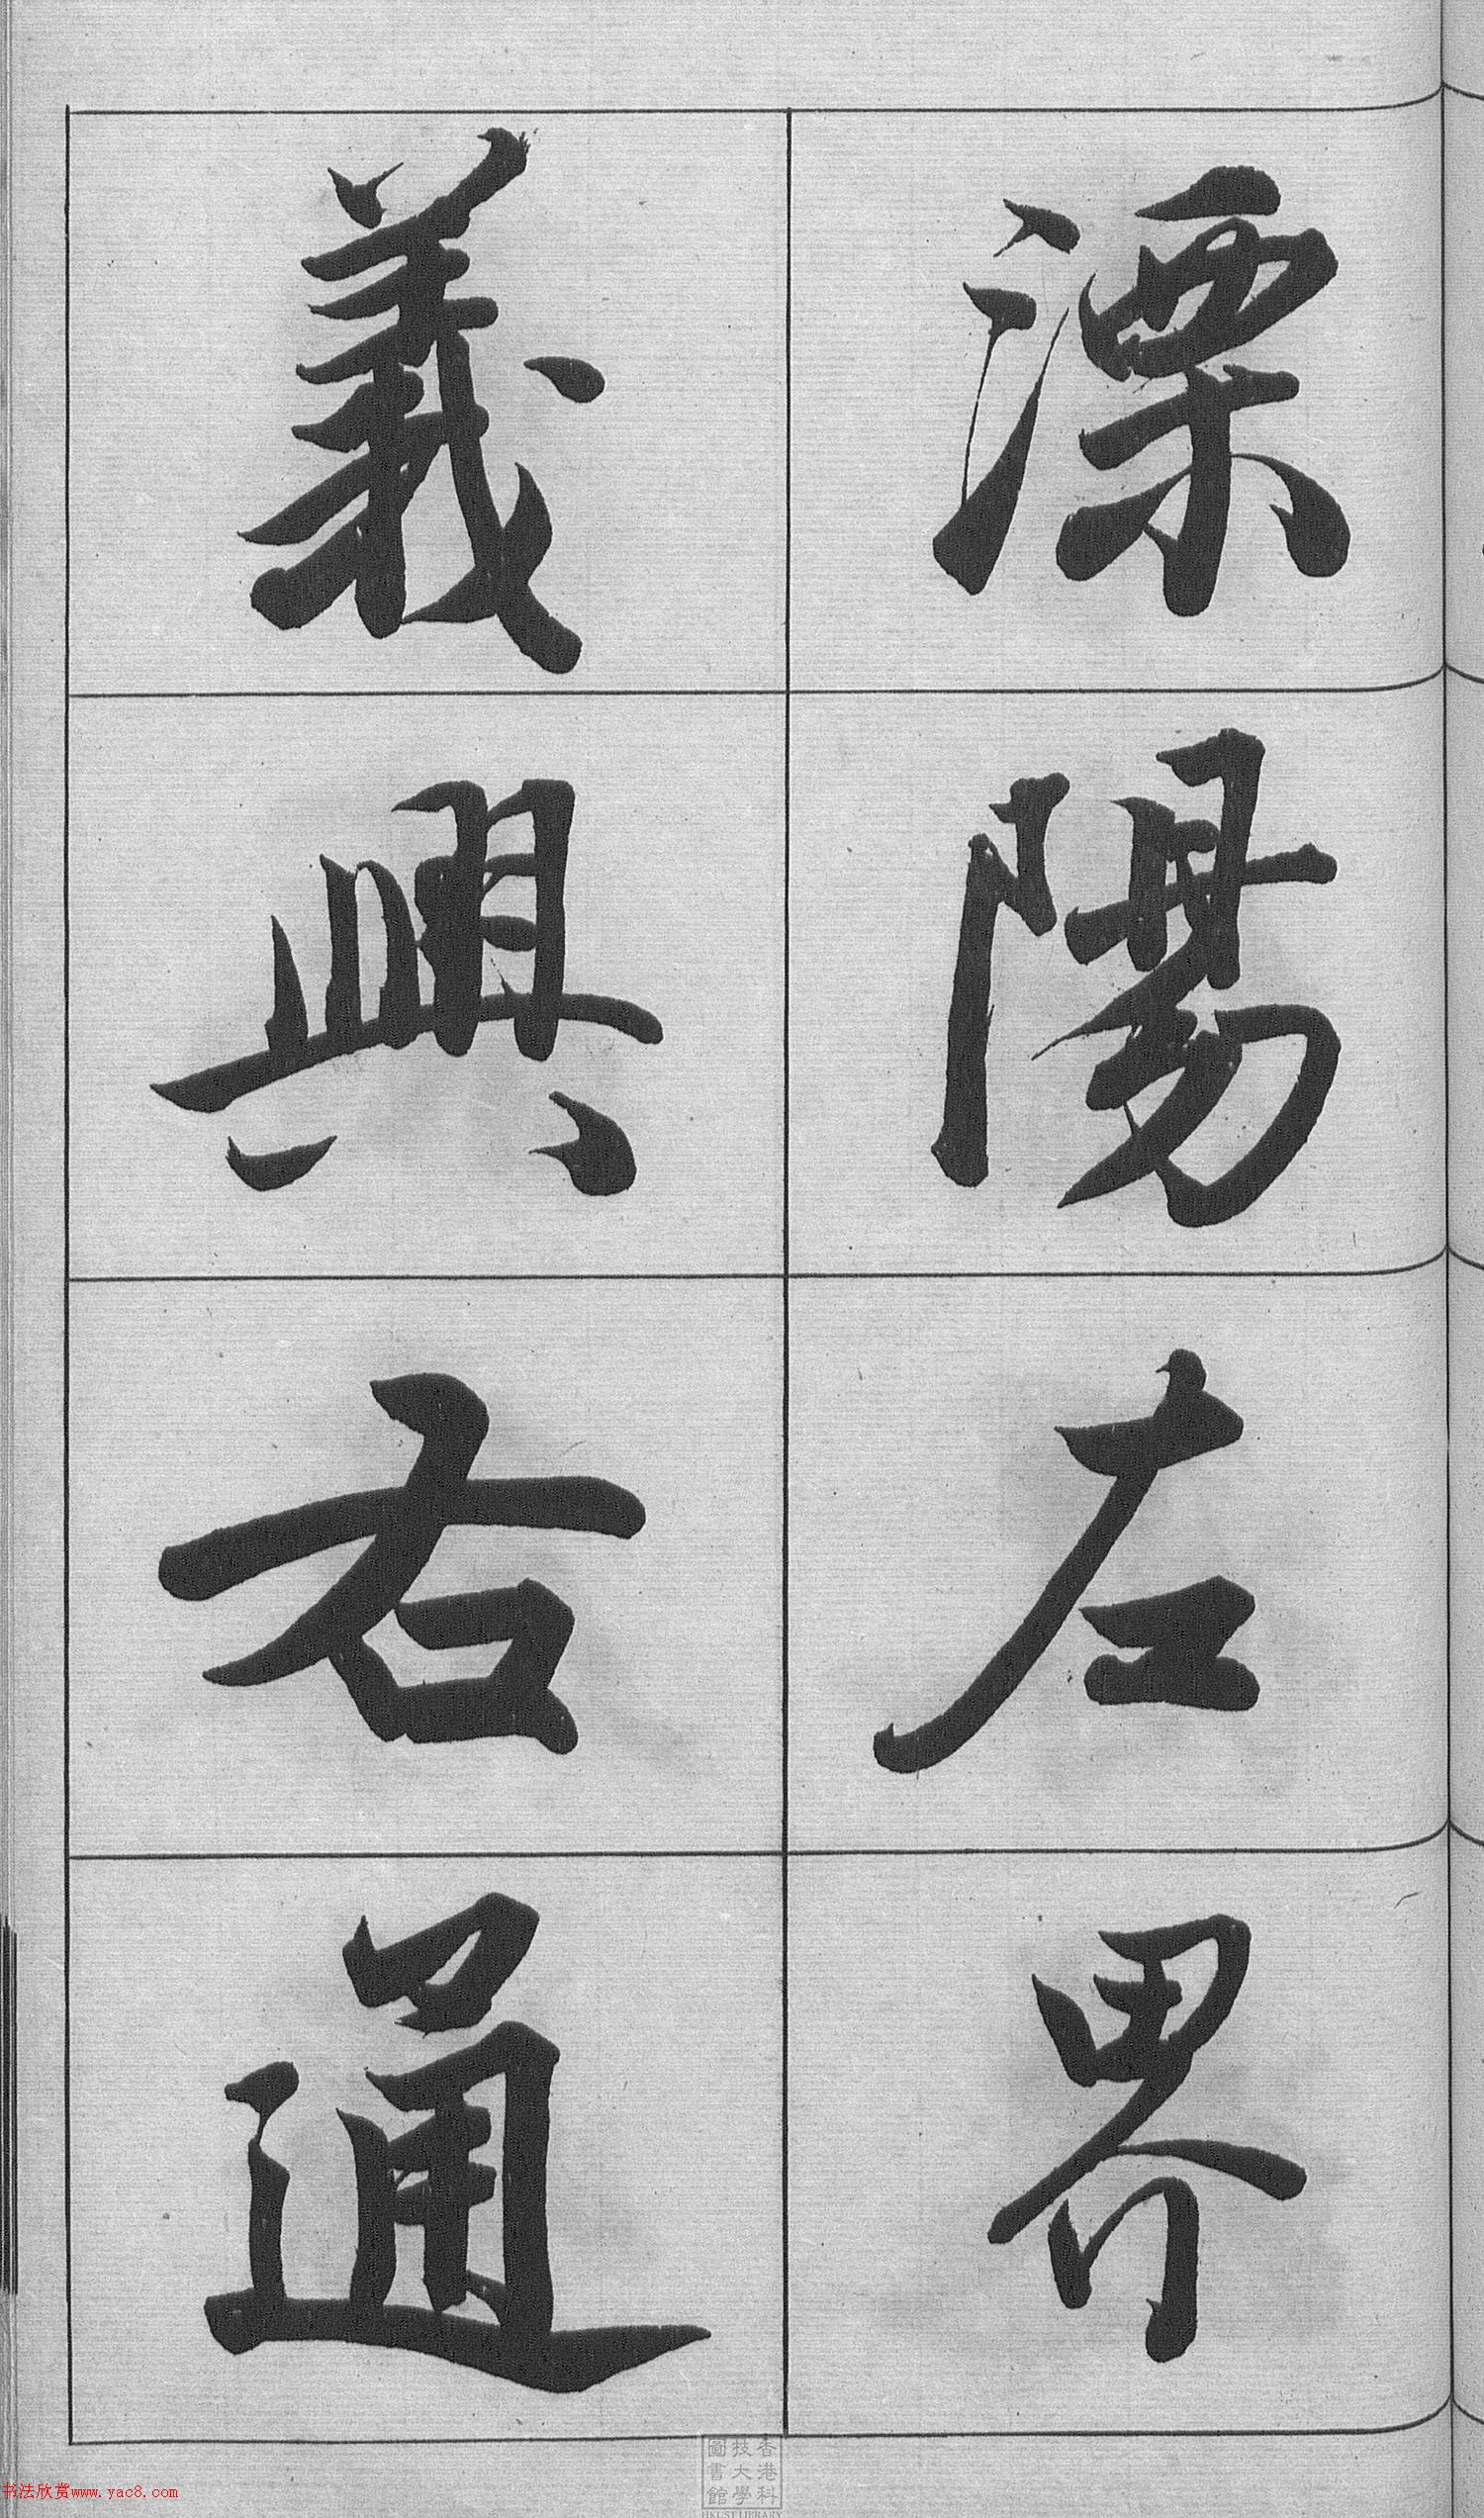 溧陽左界
義興右通
香港科
技大學
圖書館
HKUST LIBRARY
书法欣赏www.yac8.com